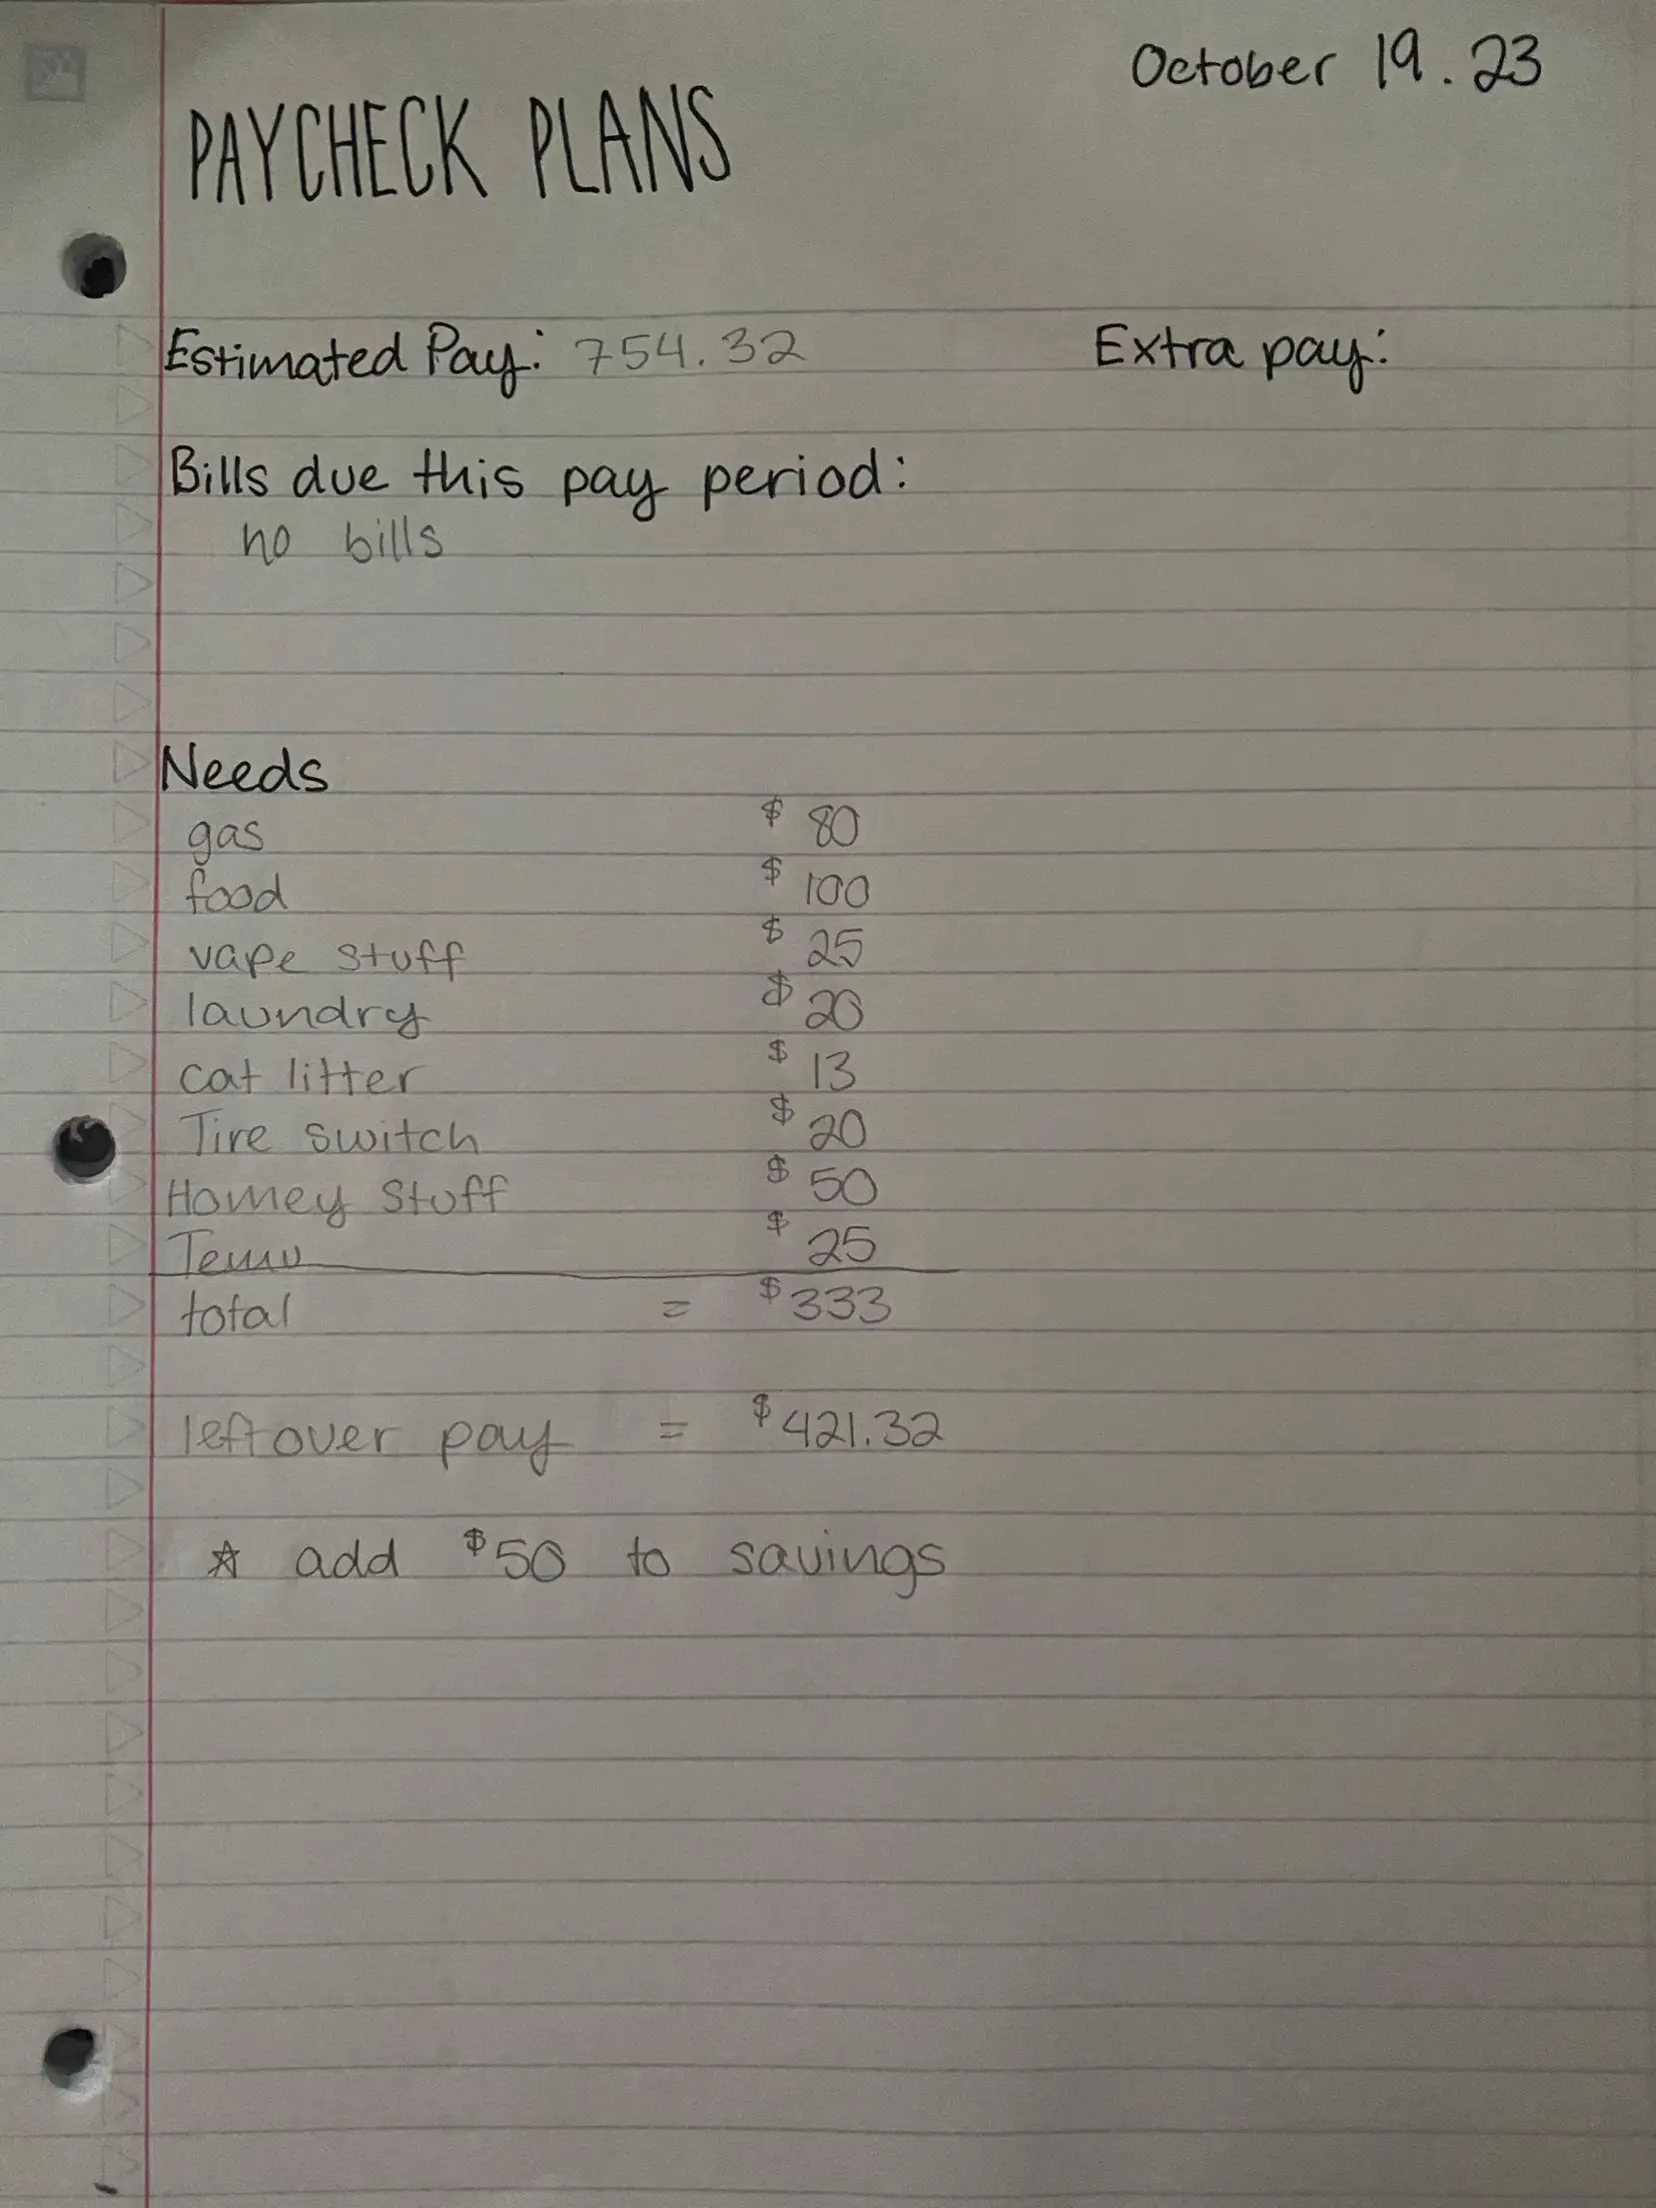 October 19.23
PAYCHECK PLANS
Estimated Pay: 754.32 Extra pay:
Bills due this pay period:
no bills
Needs
gas $ 80
food $ 100
vape stuff $ 25
laundry $ 20
cat litter $ 13
Tire switch $ 20
Homey Stuff $ 50
Temu $ 25
total = $ 333
leftover pay = $ 421.32
☆ add $50 to savings